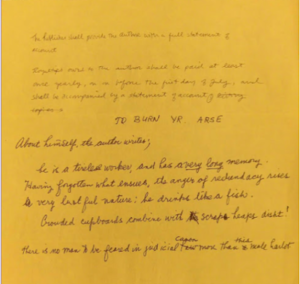 The Publisher shall provide the Author with a full statement of
account
Royalties owed to the author shall be paid at least
once yearly, on or before the first day of July, and
shall be accompanied by a statement of account of
copies
TO BURN YR. ARSE
About himself, the author writes;
he is a tireless worker, and has a very long memory.
Having forgotten what ensues, the anger of
very lustful nature: he drinks like a fish.
Crowded cupboards combine with scrap heaps
there is no man to be feared in judicial more than male harlot